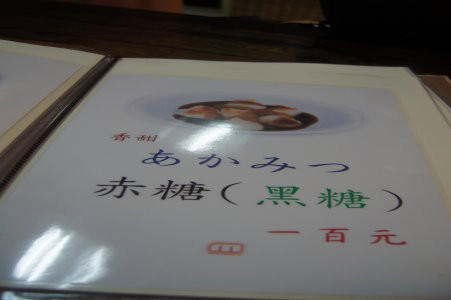 香甜
あかみつ
赤糖(黑糖)
一百元